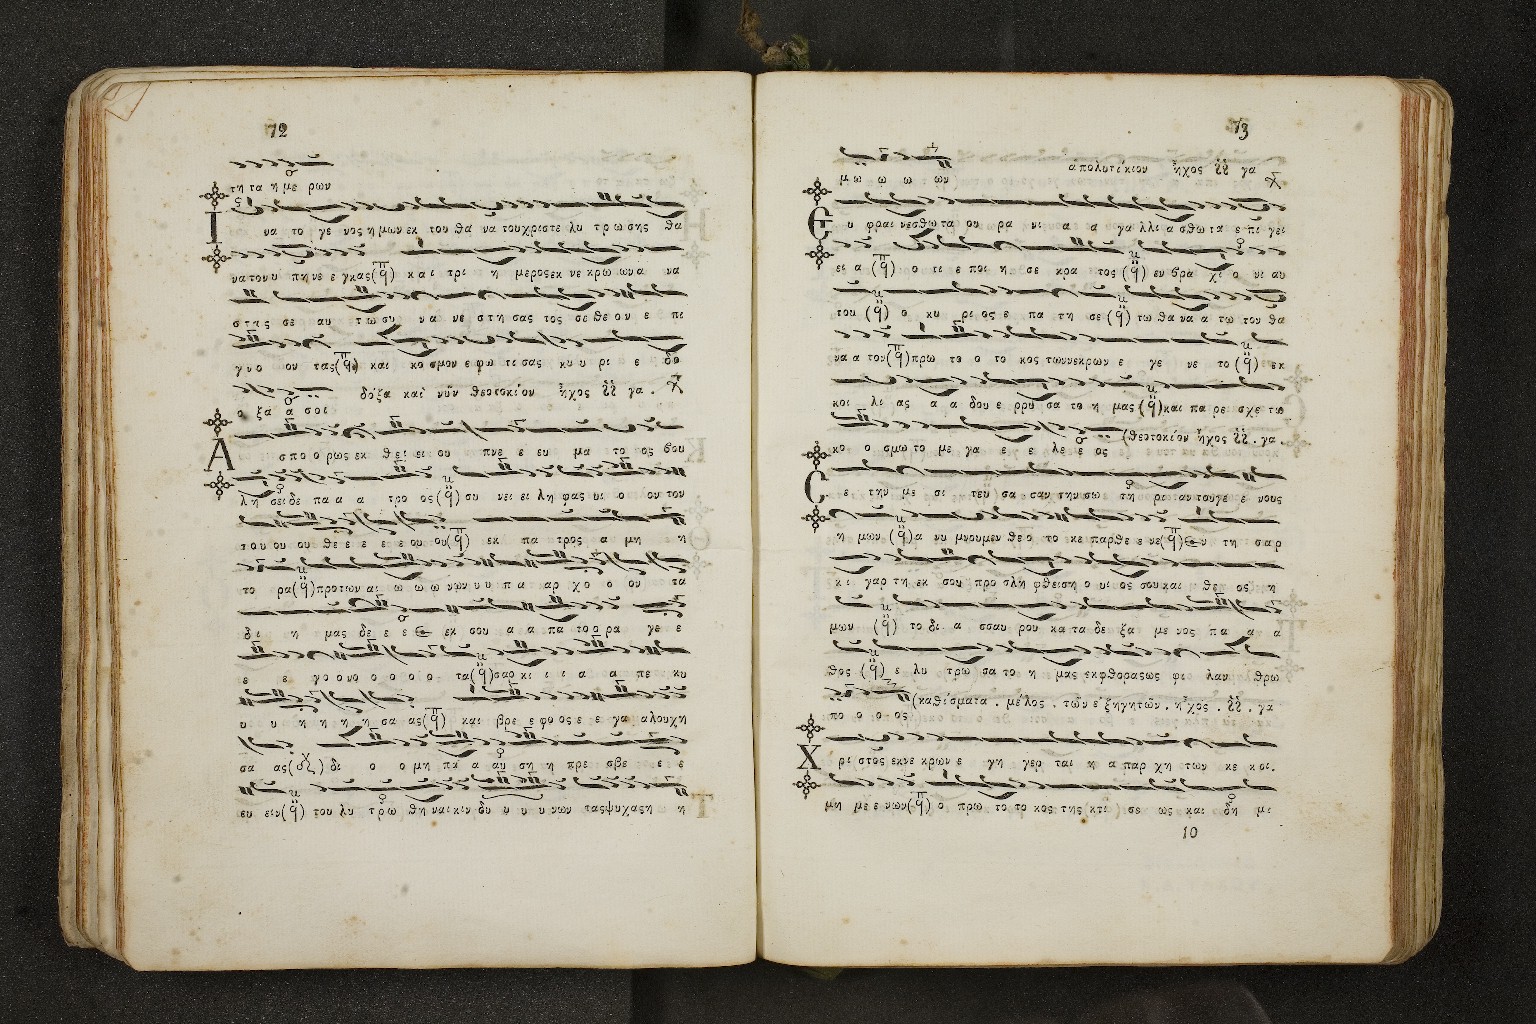 72
τη τα η με ρων
Ι να το γε νος η μων εκ του θα να του χριστε λυ τρωσης θα
να τον υ πη νε ε γκας (π̅ q̈) και τρι η μερος εκ νε κρω ων α να
στης σε αυ τω συ να νε στη σας τος σε θε ον ε πι
γνο ον τας (π̅ q̈) και κο σμον ε φω τι σας κυ υ ρι ε δο
ο ξα α σοι δόξα καὶ νῦν θεοτοκίον ἦχος γα .
Α σπο ο ρως εκ θει ει ου πνε ε ευ μα το ος βου
λη σει δε πα α α τρο ος (q̈) συ νει ει λη φας υι ο ον τον
του ου ου θε ε ε ε ε ου ου (π̅ q̈) εκ πα τρος α μη η
το ρα (q̈) προ των αι ω ω ω νων υ υ πα αρ χο ο ο ον τα
δι η μας δε ε ε Ͼ εκ σου α α πα το ο ρα γε ε
ε ε γο ο νο ο ο ο ο τα (q̈) σαρ κι ι ι α α πε κυ
υ υ η η η η σα ας (π̅ q̈) και βρε ε φο ος ε ε γα αλουχη
σα ας () δι ο ο μη πα α αυ ση η πρε σβε ε ε
ευ ειν (q̈) του λυ τρω θη ναι κιν δυ υ υ υ νων τας ψυχας η η
73
μω ω ω ω ων ἀπολυτίκιον ἦχος γα
Ε υ φραι νεσθω τα ου ρα νι α α γα λλι ασθω τα ε πι γει
ει α (π̅ q̈) ο τι ε ποι η σε κρα τος (q̈) εν βρα χι ο νι αυ
του (q̈) ο κυ ρι ος ε πα τη σε (q̈) τω θα να α τω τον θα
να α τον (π̅ q̈) πρω το ο το κος των νεκρων ε γε νε το (q̈) εκ
κοι λι ας α α δου ε ρρυ σα το η μας (q̈) και πα ρε σχε τω
κο ο σμω το με γα ε ε λε ε ος (θεοτοκίον ἦχος γα.
C ε την με σι τευ σα σαν την σω τη ρι αν του γε ε νους
η μων (q̈) α νυ μνουμεν θε ο το κε παρθε ε νε (π̅ q̈) Ͼν τη σαρ
κι γαρ τη εκ σου προ σλη φθειση ο υι ος σου και θε ος η
μων (q̈) το δι α σταυ ρου κα τα δε ξα με νος πα α α
θος (q̈) ε λυ τρω σα το η μας εκ φθορας ως φι λαν θρω
πο ο ο ος (καθίσματα . μέλος . τῶν ἐξηγητῶν . ἦχος . γα
Χ ρι στὸς εκ νε κρων ε γη γερ ται η α παρ χη των κε κοι.
μη με ε νων (π̅ q̈) ο πρω το το κος της (κτι) σε ως και δη μι
10